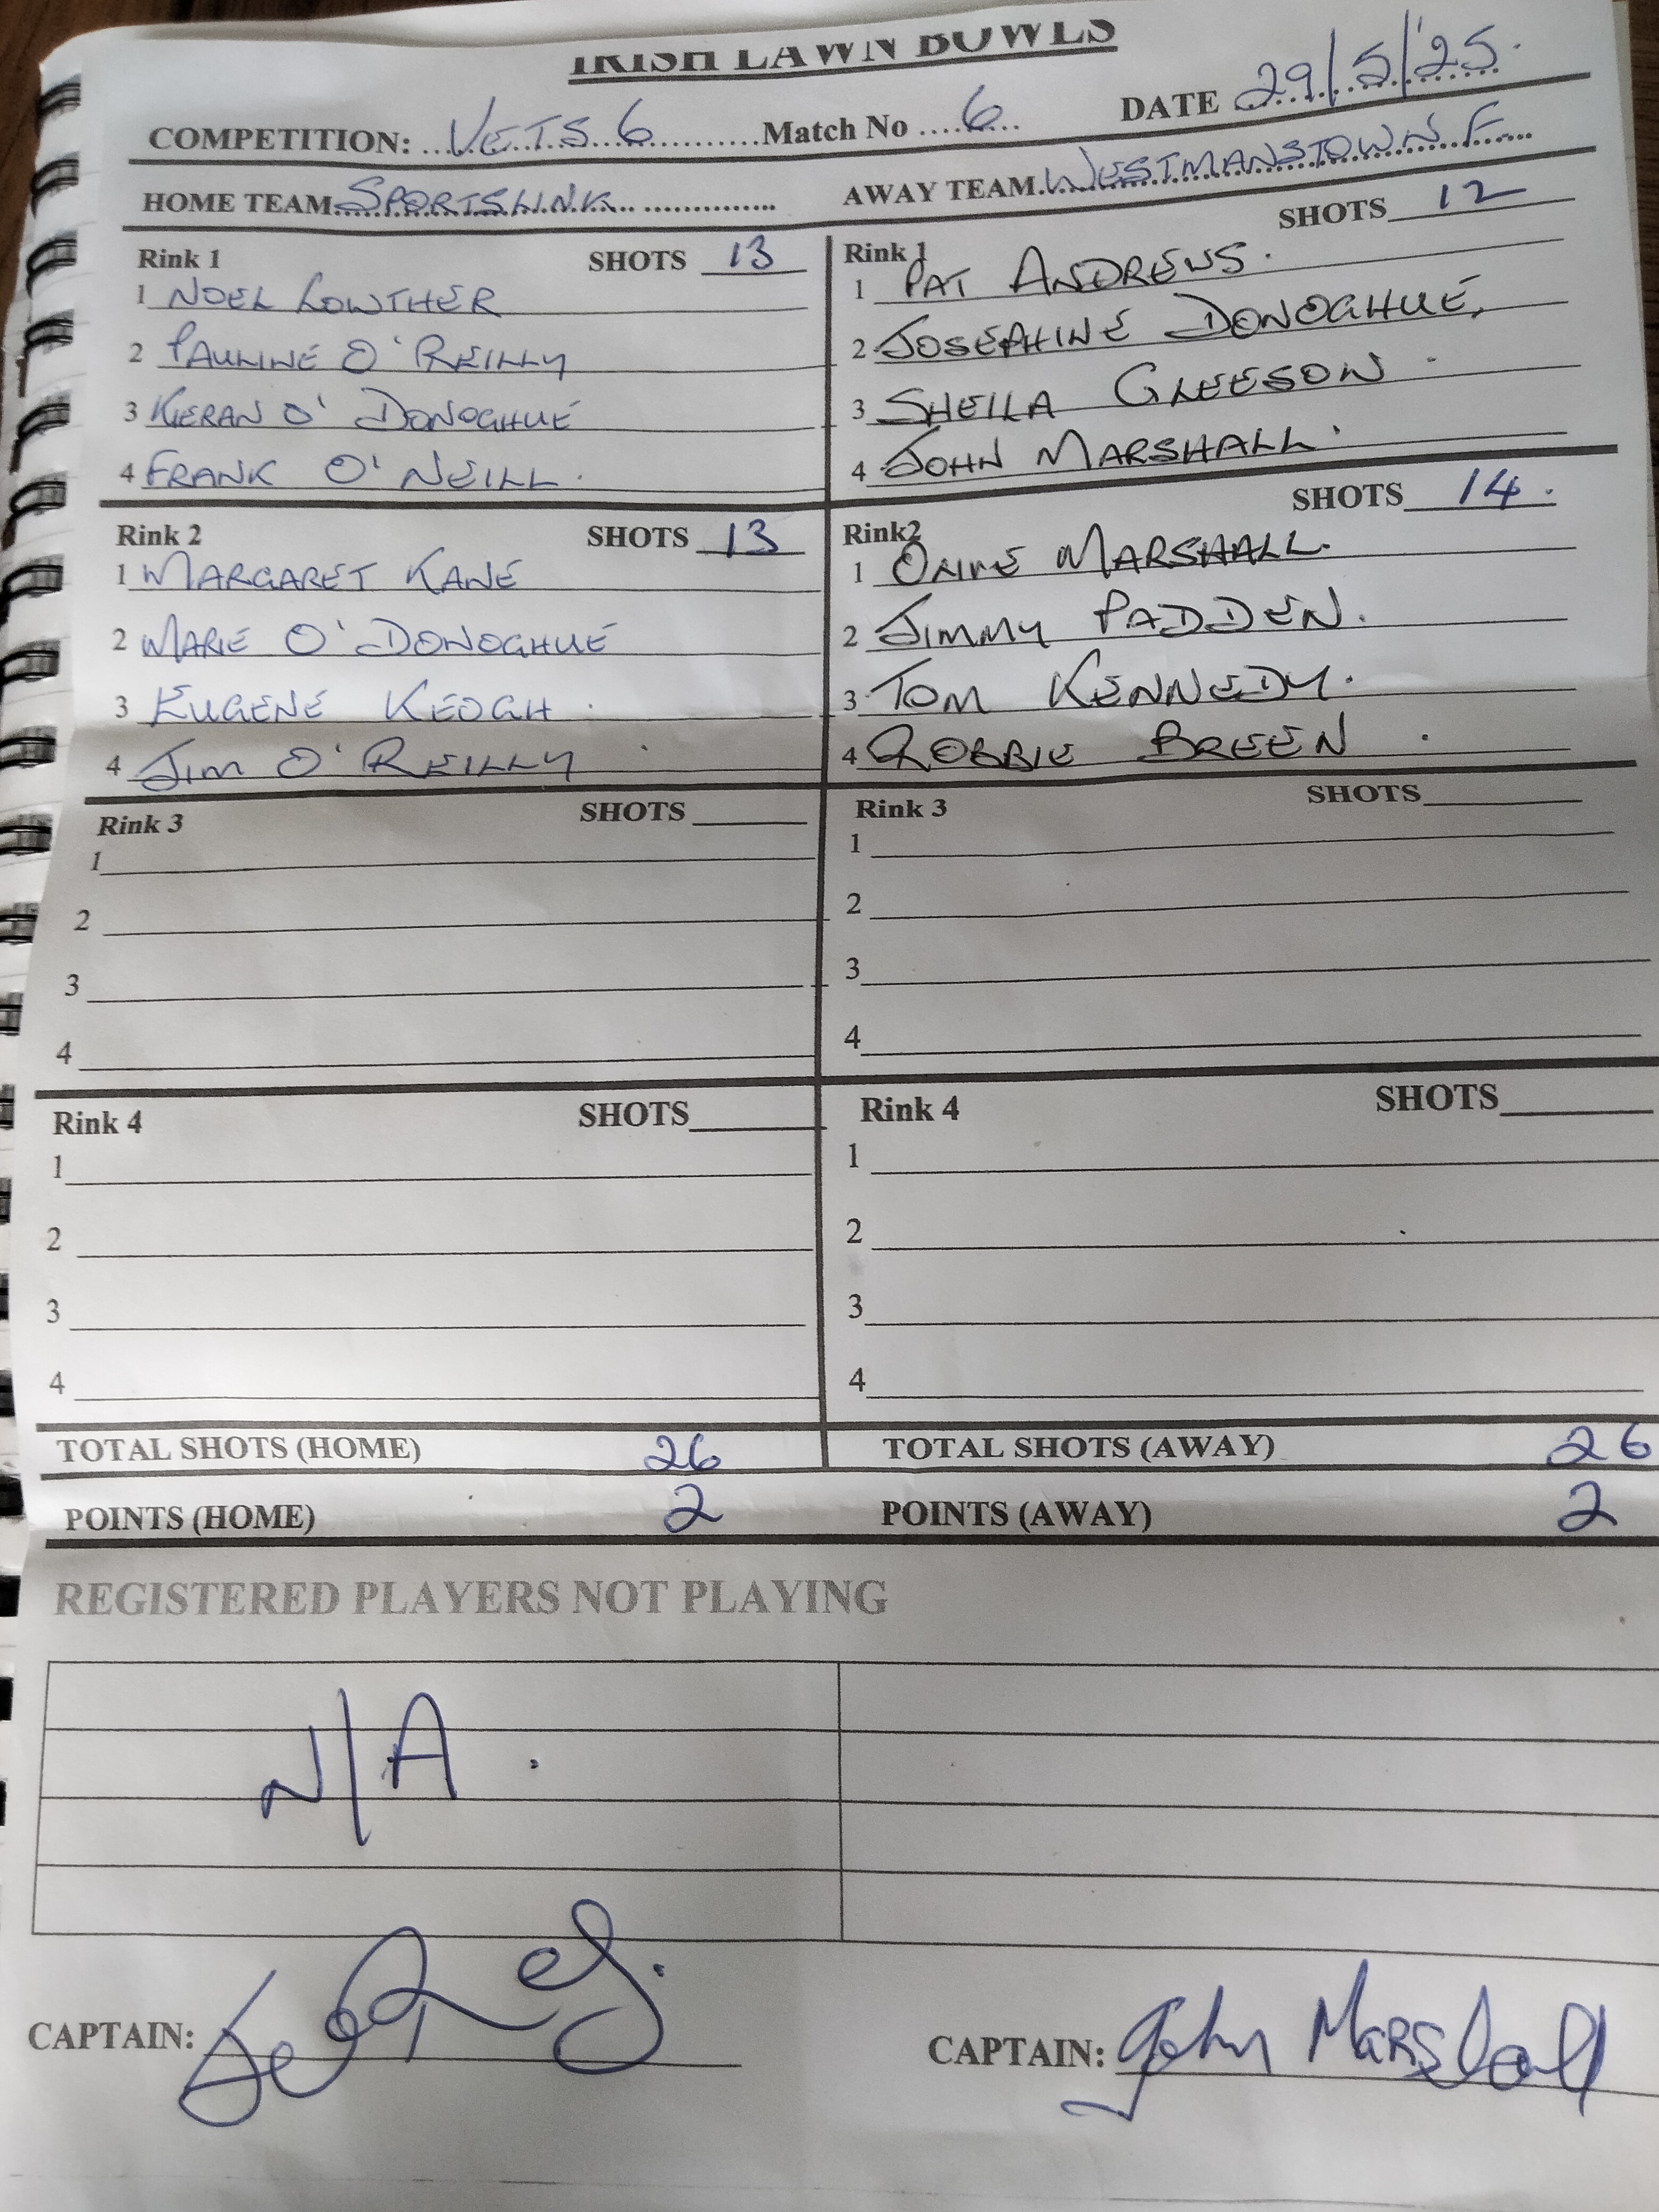 IRISH LAWN BOWLS
COMPETITION: VETS 6 Match No 6 DATE 29/5/'25.
HOME TEAM SPORTSLINK AWAY TEAM WESTMANSTOWN F
Rink 1 SHOTS 13
1 NOEL LOWTHER
2 PAULINE O'REILLY
3 KIERAN O'DONOGHUE
4 FRANK O'NEILL.
Rink 1 SHOTS 12
1 PAT ANDREWS.
2 JOSEPHINE DONOGHUE,
3 SHEILA GLEESON.
4 JOHN MARSHALL.
Rink 2 SHOTS 13
1 MARGARET KANE
2 MARIE O'DONOGHUE
3 EUGENE KEOGH.
4 JIM O'REILLY.
Rink2 SHOTS 14.
1 OLIVE MARSHALL.
2 JIMMY PADDEN.
3 TOM KENNEDY.
4 ROBBIE BREEN.
Rink 3 SHOTS
1
2
3
4
Rink 3 SHOTS
1
2
3
4
Rink 4 SHOTS
1
2
3
4
Rink 4 SHOTS
1
2
3
4
TOTAL SHOTS (HOME) 26 TOTAL SHOTS (AWAY) 26
POINTS (HOME) 2 POINTS (AWAY) 2
REGISTERED PLAYERS NOT PLAYING
N/A.
CAPTAIN:
CAPTAIN: John Marshall